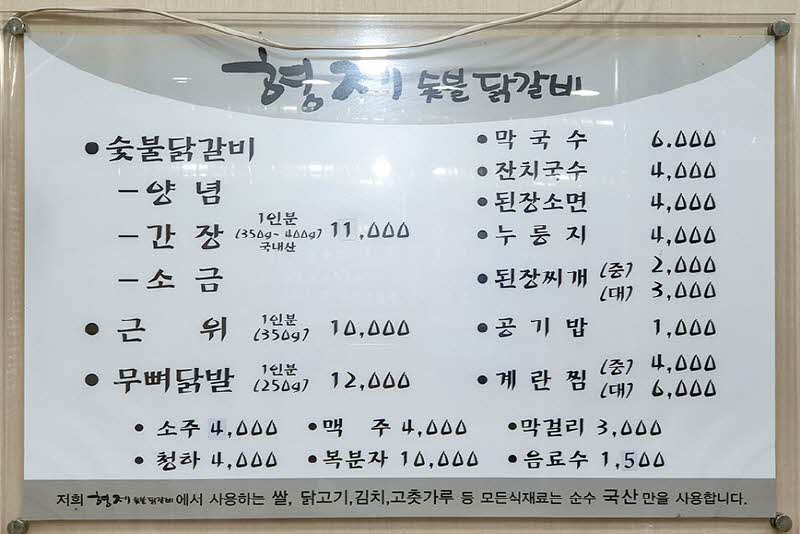 형제 숯불 닭갈비
• 숯불닭갈비
- 양 념
- 간 장 1인분 (350g~400g) 국내산 11,000
- 소 금
• 근 위 1인분 (350g) 10,000
• 무뼈닭발 1인분 (250g) 12,000
• 막 국 수 6,000
• 잔치국수 4,000
• 된장소면 4,000
• 누 룽 지 4,000
• 된장찌개 (중) 2,000
(대) 3,000
• 공 기 밥 1,000
• 계 란 찜 (중) 4,000
(대) 6,000
• 소주 4,000 • 맥 주 4,000 • 막걸리 3,000
• 청하 4,000 • 복분자 10,000 • 음료수 1,500
저희 형제 숯불 닭갈비에서 사용하는 쌀, 닭고기,김치,고춧가루 등 모든식재료는 순수 국산만을 사용합니다.